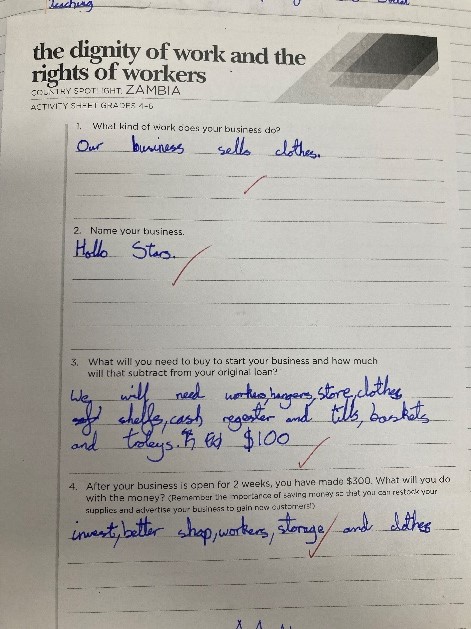 teaching
the dignity of work and the
rights of workers
COUNTRY SPOTLIGHT: ZAMBIA
ACTIVITY SHEET GRADES 4-6
1. What kind of work does your business do?
Our business sells clothes.
2. Name your business.
Hollo Stars.
3. What will you need to buy to start your business and how much
will that subtract from your original loan?
We will need workers, hangers, store, clothes
shelfs, cash regester and tills, baskets
and troleys. $100
4. After your business is open for 2 weeks, you have made $300. What will you do
with the money? (Remember the importance of saving money so that you can restock your
supplies and advertise your business to gain new customers!)
invest, better shop, workers, storage and clothes